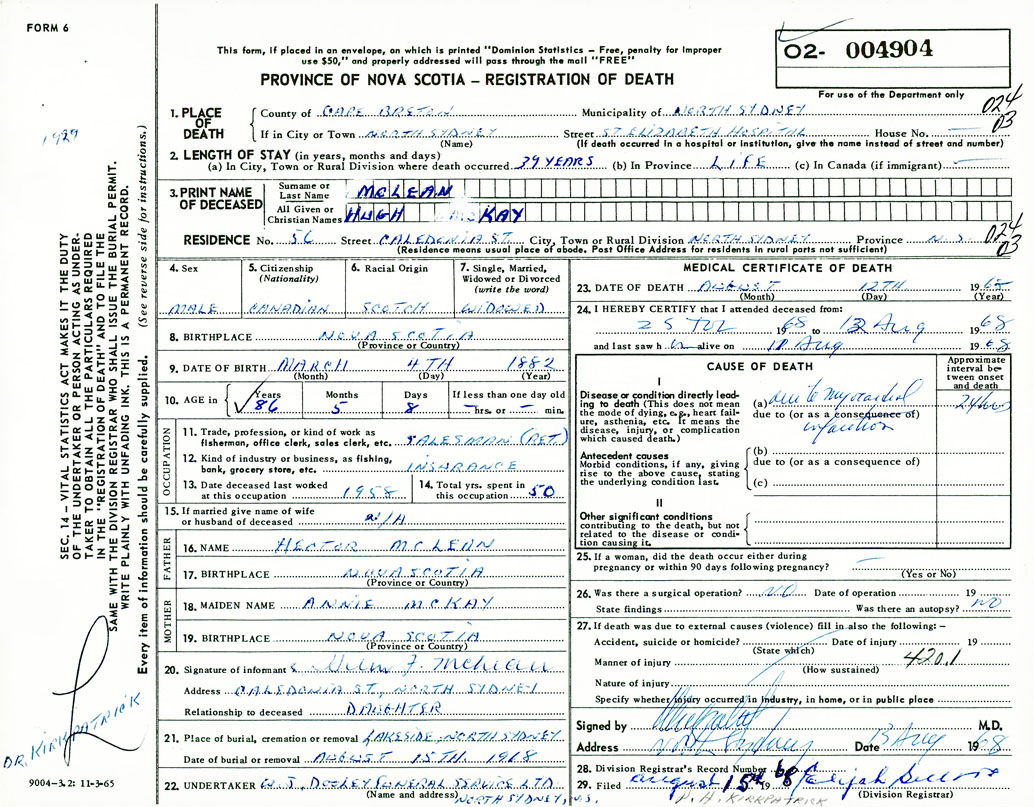 FORM 6
This form, if placed in an envelope, on which is printed "Dominion Statistics – Free, penalty for improper
use $50," and properly addressed will pass through the mail "FREE"
PROVINCE OF NOVA SCOTIA – REGISTRATION OF DEATH
O2- 004904
For use of the Department only
024
03
1. PLACE OF DEATH County of CAPE BRETON Municipality of NORTH SYDNEY
If in City or Town NORTH SYDNEY Street ST ELIZABETH HOSPITAL House No. —
(Name) (If death occurred in a hospital or institution, give the name instead of street and number)
2. LENGTH OF STAY (in years, months and days)
(a) In City, Town or Rural Division where death occurred 39 YEARS (b) In Province LIFE (c) In Canada (if immigrant) —
3. PRINT NAME OF DECEASED
Surname or Last Name MCLEAN
All Given or Christian Names HUGH MCKAY
024
03
RESIDENCE No. 56 Street CALEDONIA ST. City, Town or Rural Division NORTH SYDNEY Province N.S.
(Residence means usual place of abode. Post Office Address for residents in rural parts not sufficient)
4. Sex 5. Citizenship (Nationality) 6. Racial Origin 7. Single, Married, Widowed or Divorced (write the word)
MALE CANADIAN SCOTCH WIDOWED
8. BIRTHPLACE NOVA SCOTIA
(Province or Country)
9. DATE OF BIRTH MARCH 4TH 1882
(Month) (Day) (Year)
10. AGE in Years Months Days If less than one day old
86 5 8 — hrs. or — min.
OCCUPATION
11. Trade, profession, or kind of work as
fisherman, office clerk, sales clerk, etc. SALESMAN (RET.)
12. Kind of industry or business, as fishing,
bank, grocery store, etc. INSURANCE
13. Date deceased last worked at this occupation 1958 14. Total yrs. spent in this occupation 50
15. If married give name of wife
or husband of deceased N/A
FATHER
16. NAME HECTOR MCLEAN
17. BIRTHPLACE NOVA SCOTIA
(Province or Country)
MOTHER
18. MAIDEN NAME ANNIE MCKAY
19. BIRTHPLACE NOVA SCOTIA
(Province or Country)
20. Signature of informant F. McLean
Address CALEDONIA ST, NORTH SYDNEY
Relationship to deceased DAUGHTER
21. Place of burial, cremation or removal LAKESIDE, NORTH SYDNEY
Date of burial or removal AUGUST 15TH. 1968
22. UNDERTAKER W. J. DOOLEY FUNERAL SERVICE LTD.
(Name and address) NORTH SYDNEY, N.S.
MEDICAL CERTIFICATE OF DEATH
23. DATE OF DEATH AUGUST 12TH 1968
(Month) (Day) (Year)
24. I HEREBY CERTIFY that I attended deceased from:
25 JUL 1968 to 12 Aug 1968
and last saw him alive on Aug 1968
CAUSE OF DEATH
Approximate interval between onset and death
I
Disease or condition directly leading to death (This does not mean the mode of dying, e.g., heart failure, asthenia, etc. It means the disease, injury, or complication which caused death.)
(a) due to myocardial
due to (or as a consequence of)
infarction
Antecedent causes
Morbid conditions, if any, giving rise to the above cause, stating the underlying condition last.
(b)
due to (or as a consequence of)
(c)
II
Other significant conditions
contributing to the death, but not related to the disease or condition causing it.
25. If a woman, did the death occur either during
pregnancy or within 90 days following pregnancy? —
(Yes or No)
26. Was there a surgical operation? NO Date of operation 19
State findings Was there an autopsy? NO
27. If death was due to external causes (violence) fill in also the following: –
Accident, suicide or homicide? Date of injury 19
(State which)
Manner of injury 420.1
(How sustained)
Nature of injury
Specify whether injury occurred in industry, in home, or in public place
Signed by M.D.
Address North Sydney Date 13 Aug 1968
28. Division Registrar's Record Number
29. Filed August 15th 1968
(Division Registrar)
P. A. KIRKPATRICK
1929
SEC. 14 – VITAL STATISTICS ACT MAKES IT THE DUTY
OF THE UNDERTAKER OR PERSON ACTING AS UNDER-
TAKER TO OBTAIN ALL THE PARTICULARS REQUIRED
IN THE "REGISTRATION OF DEATH" AND TO FILE THE
SAME WITH THE DIVISION REGISTRAR WHO SHALL ISSUE THE BURIAL PERMIT.
WRITE PLAINLY WITH UNFADING INK. THIS IS A PERMANENT RECORD.
Every item of information should be carefully supplied. (See reverse side for instructions.)
DR. KIRKPATRICK
9004-3.2: 11-3-65